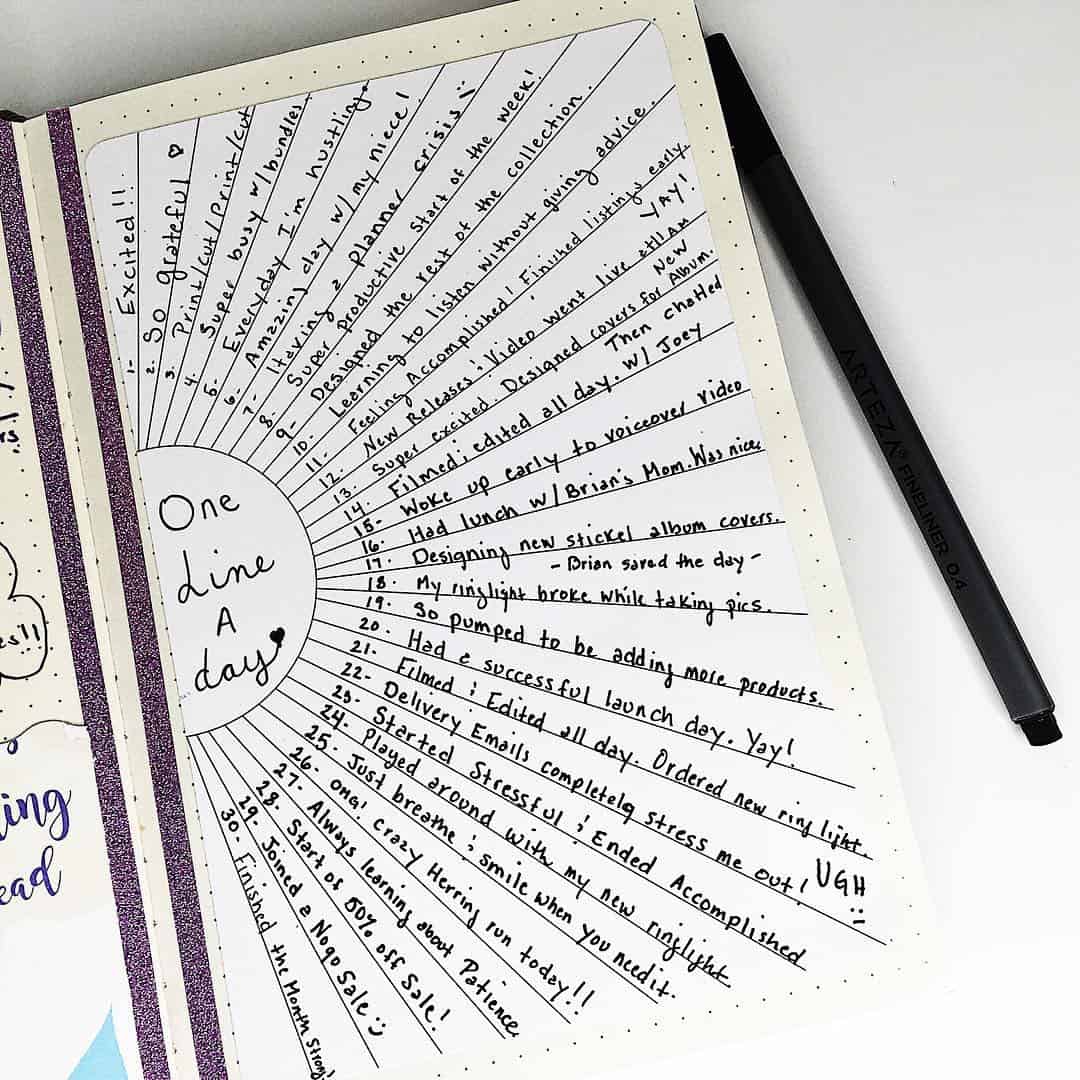 One
Line
A
day
1- Excited!!
2. So grateful
3. Print/cut/Print/cut
4. Super busy w/bundles
5- Everyday I'm hustling.
6- Amazing day w/ my niece!
7- Having a planner crisis
8. Super productive start of the week!
9- Designed the rest of the collection.
10. Learning to listen without giving advice.
11- Feeling Accomplished! Finished listings early.
12. New Releases & Video went live at 11 AM YAY!
13. Super excited. Designed covers for New Album.
14. Filmed & edited all day. Then chatted w/ Joey
15- Woke up early to voiceover video
16. Had lunch w/ Brian's Mom. Was nice
17. Designing new stickel album covers.
- Brian saved the day -
18. My ringlight broke while taking pics.
19. So pumped to be adding more products.
20. Had a successful launch day. Yay!
21. Filmed & Edited all day. Ordered new ring light.
22- Delivery Emails completely stress me out! UGH
23- Started Stressful & Ended Accomplished
24. Played around with my new ringlight
25. Just breathe & smile when you need it.
26- OMG! crazy Herring run today!!
27- Always learning about Patience
28- Start of 50% off Sale!
29- Joined a Nogo Sale
30- Finished the Month Strong
ing
ead
ARTEZA® FINELINER 0.4